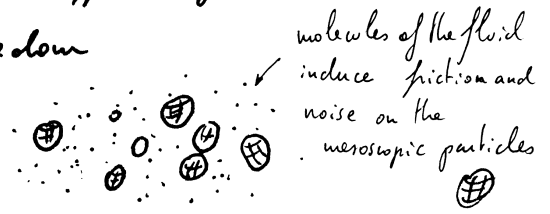 molecules of the fluid
induce friction and
noise on the
mesoscopic particles